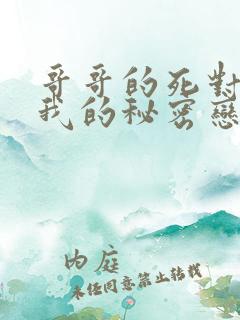 哥哥的死對
我的秘密戀
內庭
未经同意禁止转载